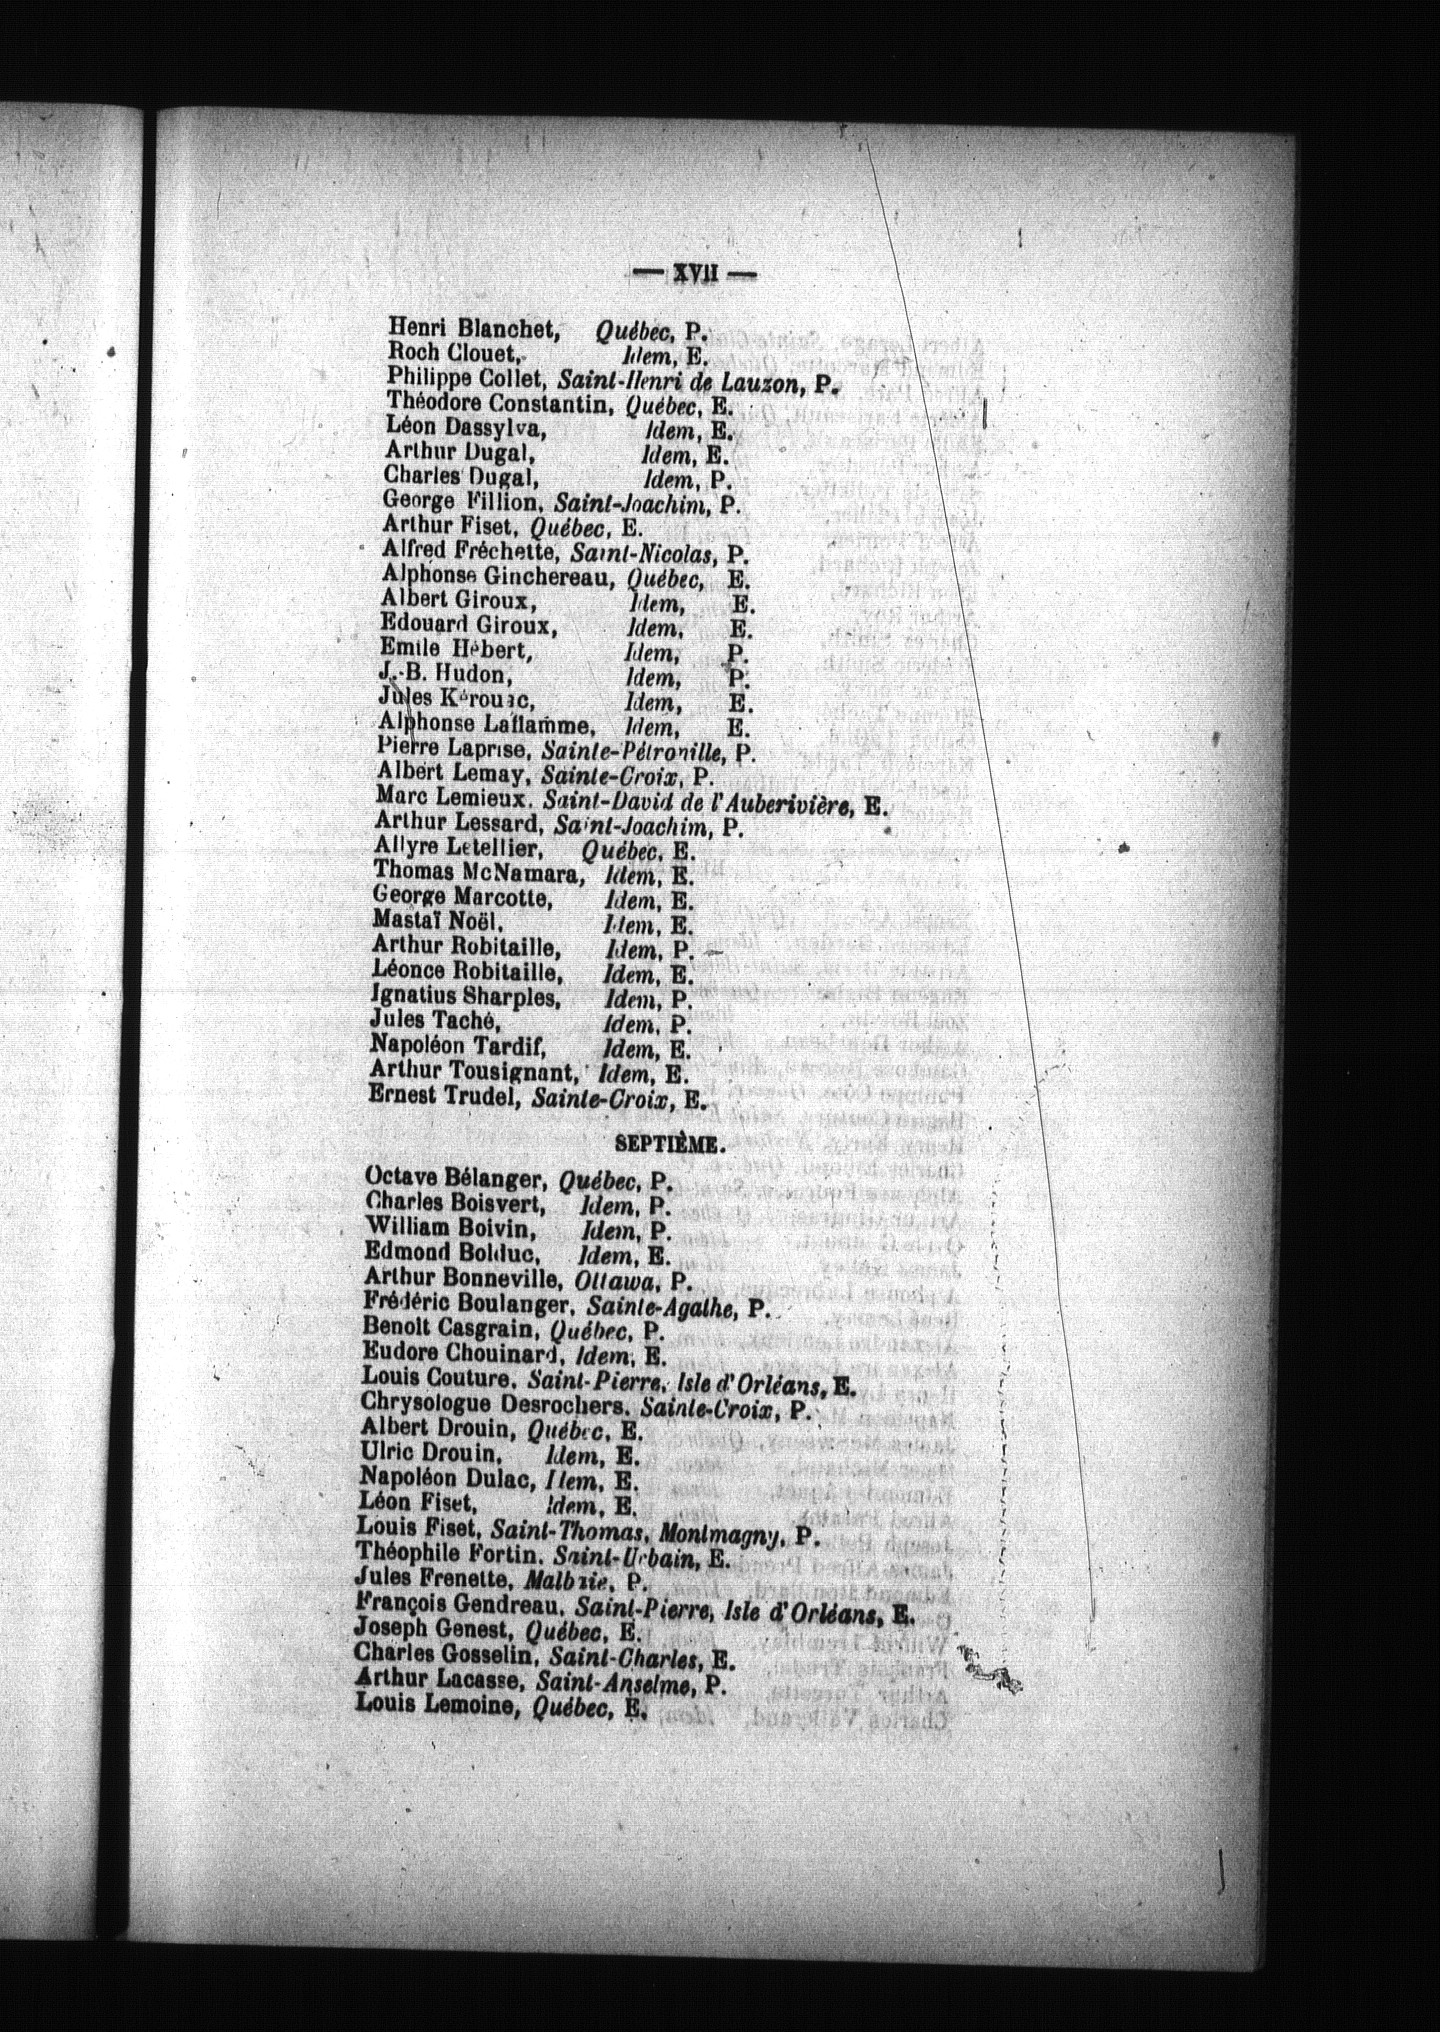 — XVII —
Henri Blanchet, Québec, P.
Roch Clouet, Idem, E.
Philippe Collet, Saint-Henri de Lauzon, P.
Théodore Constantin, Québec, E.
Léon Dassylva, Idem, E.
Arthur Dugal, Idem, E.
Charles Dugal, Idem, P.
George Fillion, Saint-Joachim, P.
Arthur Fiset, Québec, E.
Alfred Fréchette, Saint-Nicolas, P.
Alphonse Ginchereau, Québec, E.
Albert Giroux, Idem, E.
Edouard Giroux, Idem, E.
Emile Hébert, Idem, P.
J.-B. Hudon, Idem, P.
Jules Kérouac, Idem, E.
Alphonse Laflamme, Idem, E.
Pierre Laprise, Sainte-Pétronille, P.
Albert Lemay, Sainte-Croix, P.
Marc Lemieux, Saint-David de l'Auberivière, E.
Arthur Lessard, Saint-Joachim, P.
Allyre Letellier, Québec, E.
Thomas McNamara, Idem, E.
George Marcotte, Idem, E.
Mastaï Noël, Idem, E.
Arthur Robitaille, Idem, P.
Léonce Robitaille, Idem, E.
Ignatius Sharples, Idem, P.
Jules Taché, Idem, P.
Napoléon Tardif, Idem, E.
Arthur Tousignant, Idem, E.
Ernest Trudel, Sainte-Croix, E.
SEPTIÈME.
Octave Bélanger, Québec, P.
Charles Boisvert, Idem, P.
William Boivin, Idem, P.
Edmond Bolduc, Idem, E.
Arthur Bonneville, Ottawa, P.
Frédéric Boulanger, Sainte-Agathe, P.
Benoît Casgrain, Québec, P.
Eudore Chouinard, Idem, E.
Louis Couture, Saint-Pierre, Isle d'Orléans, E.
Chrysologue Desrochers, Sainte-Croix, P.
Albert Drouin, Québec, E.
Ulric Drouin, Idem, E.
Napoléon Dulac, Idem, E.
Léon Fiset, Idem, E.
Louis Fiset, Saint-Thomas, Montmagny, P.
Théophile Fortin, Saint-Urbain, E.
Jules Frenette, Malbaie, P.
François Gendreau, Saint-Pierre, Isle d'Orléans, E.
Joseph Genest, Québec, E.
Charles Gosselin, Saint-Charles, E.
Arthur Lacasse, Saint-Anselme, P.
Louis Lemoine, Québec, E.